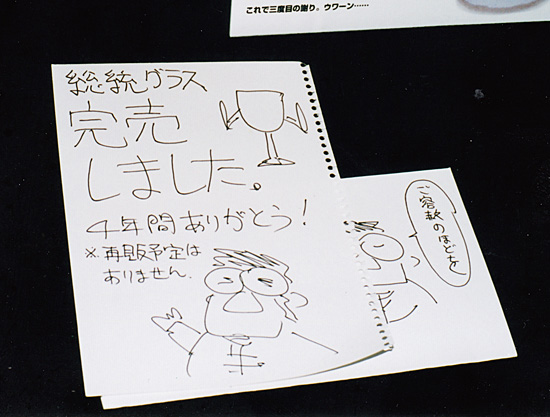 これで三度目の謝り。ウワーン……
総統グラス
完売
しました。
4年間ありがとう!
※再販予定は
ありません.
ご容赦のほどを